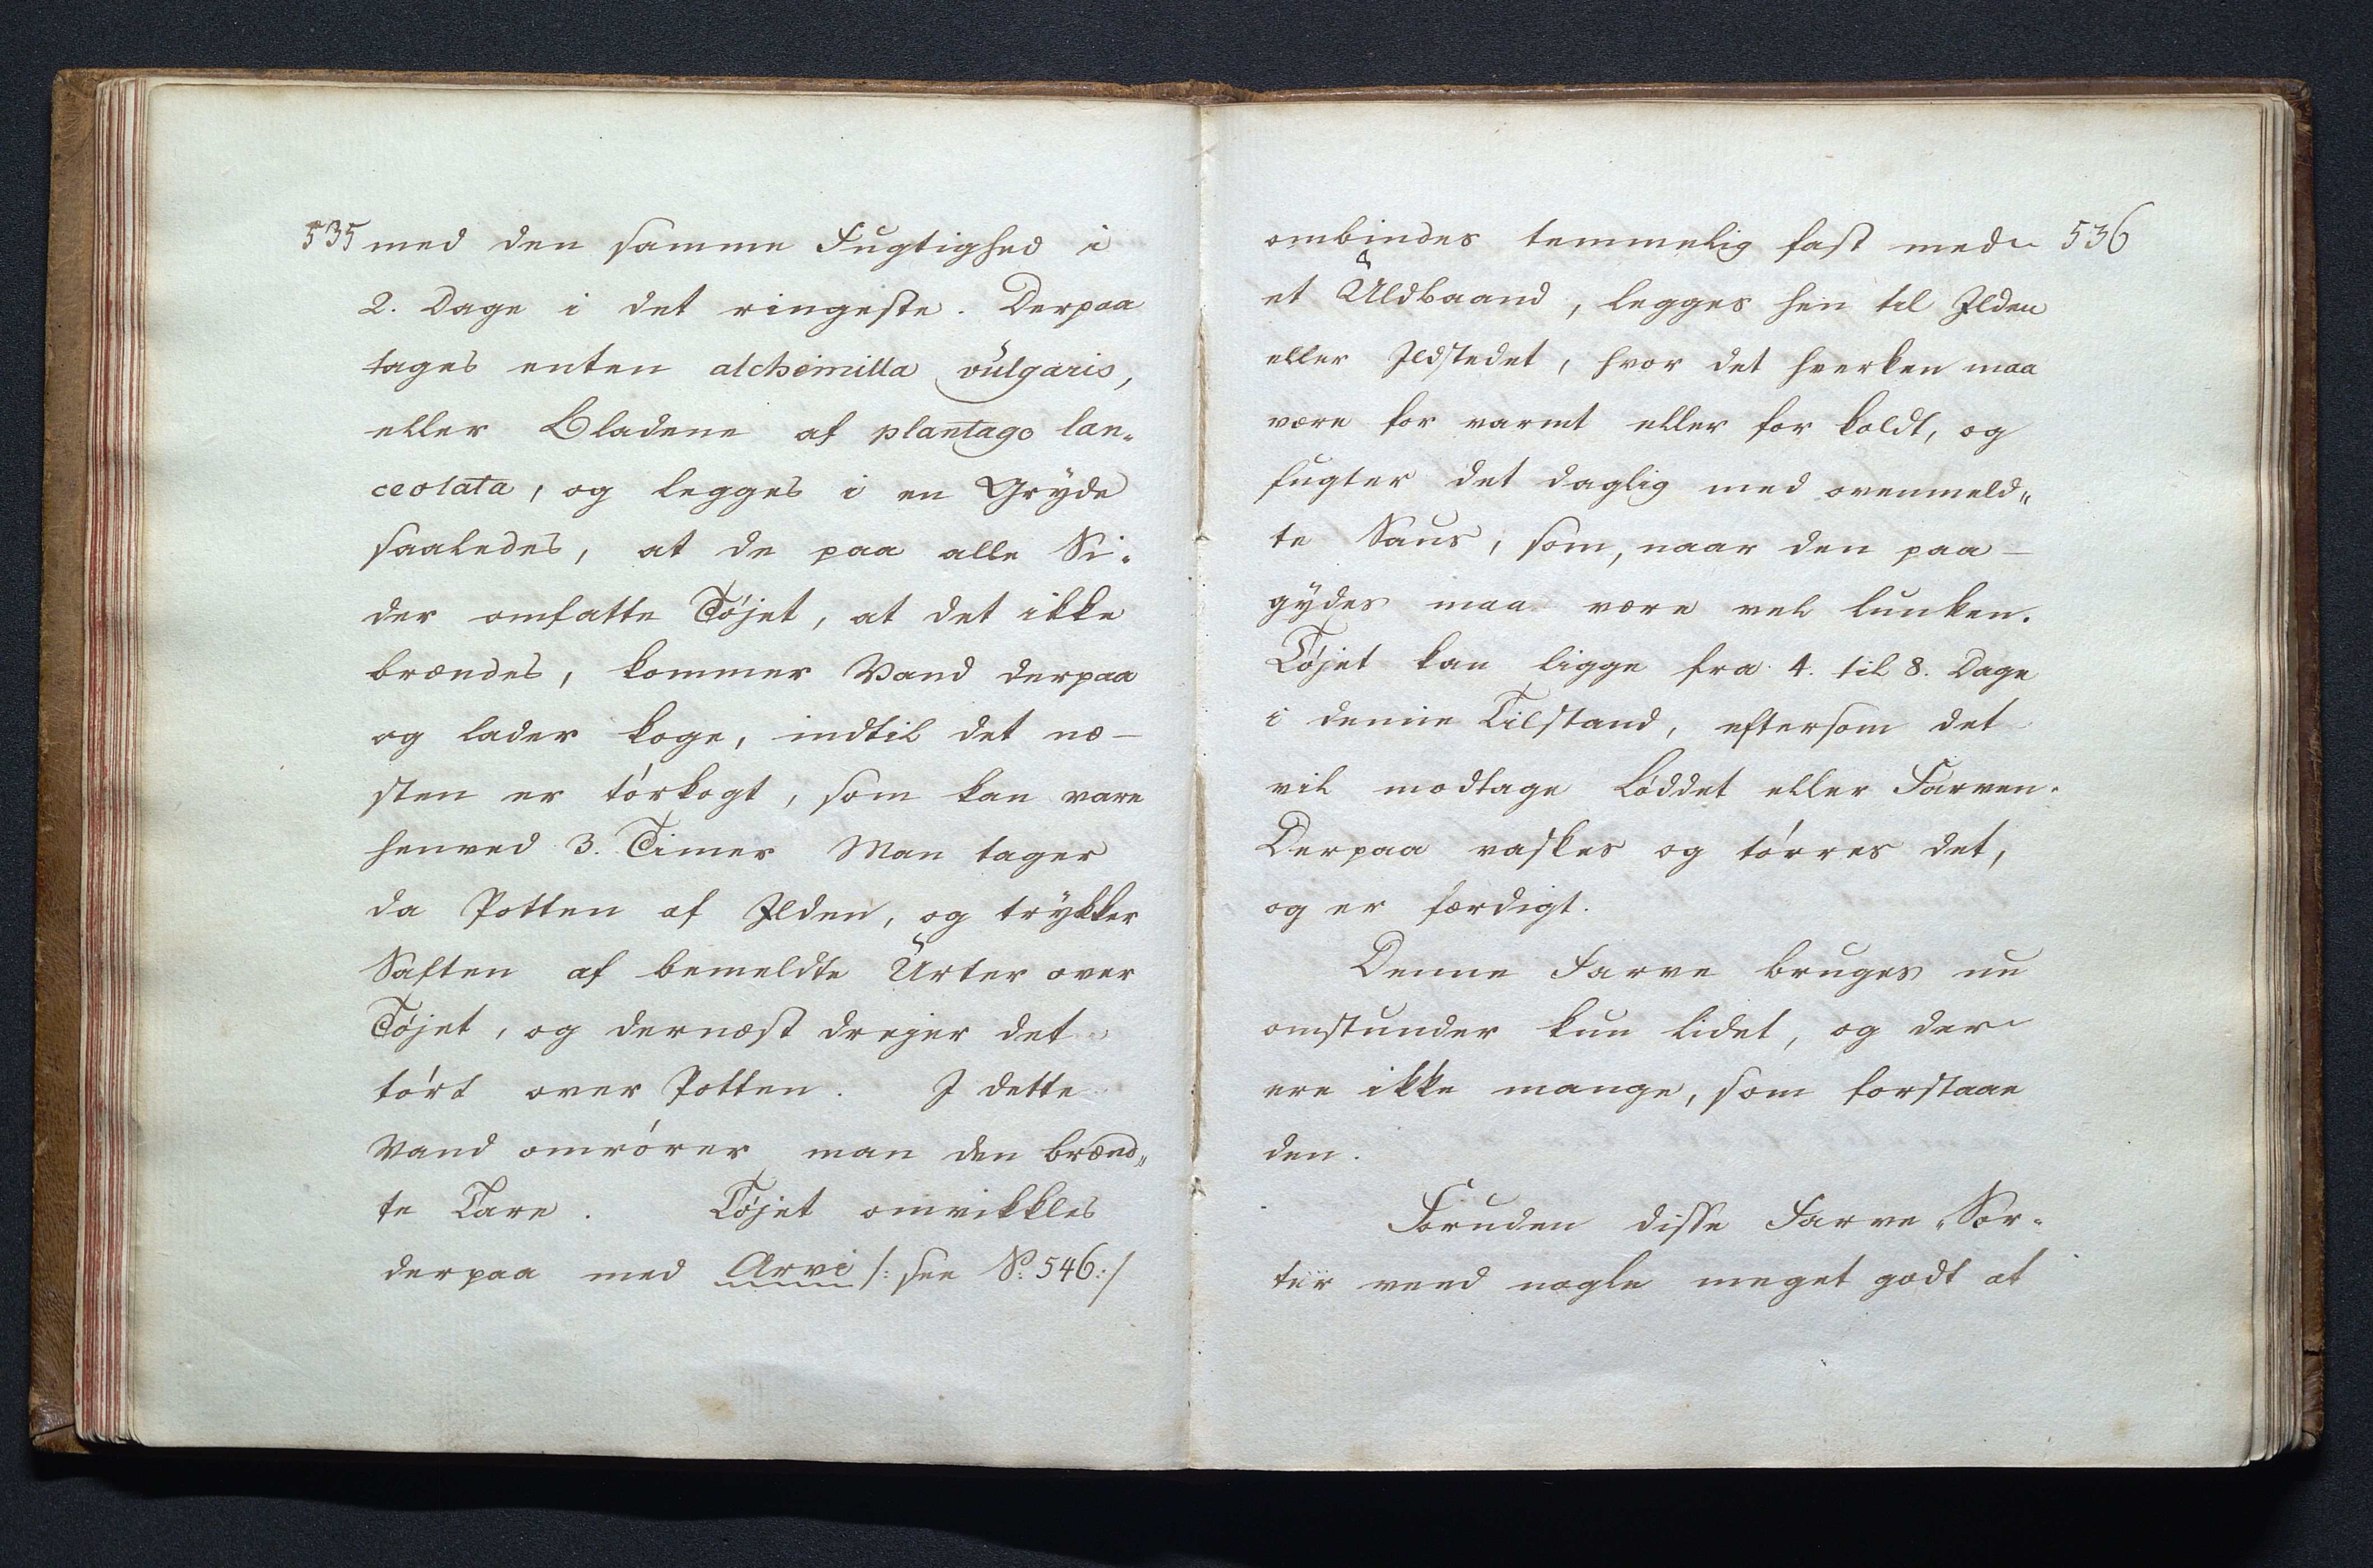 535 med den samme Fugtighed i
2. Dage i det ringeste. Derpaa
tages enten alchemilla vulgaris,
eller Bladene af plantago lan-
ceolata, og legges i en Gryde
saaledes, at de paa alle Si-
der omfatte Tøjet, at det ikke
brændes, kommer Vand derpaa
og lader koge, indtil det næ-
sten er tørkogt, som kan vare
henved 3. Timer Man tager
da Potten af Ilden, og trykker
Saften af bemeldte Urter over
Tøjet, og dernæst drejer det
tørt over Potten. I dette
Vand omrører man den brænd„
te Tare. Tøjet omvikkles
derpaa med Arvi /: see No: 546:/
ombindes temmelig fast med 536
et Uldbaand, legges hen til Ilden
eller Ildstedet, hvor det hverken maa
være for varmt eller for koldt, og
fugter det daglig med ovenmeld„
te Saus, som, naar den paa-
gydes maa være vel lunken.
Tøjet kan ligge fra 4. til 8. Dage
i denne Tilstand, eftersom det
vil modtage Løddet eller Farven.
Derpaa vaskes og tørres det,
og er færdigt.
Denne Farve bruges nu
omstunder kun lidet, og der
ere ikke mange, som forstaae
den.
Foruden disse Farve-Sor-
ter veed nogle meget godt at